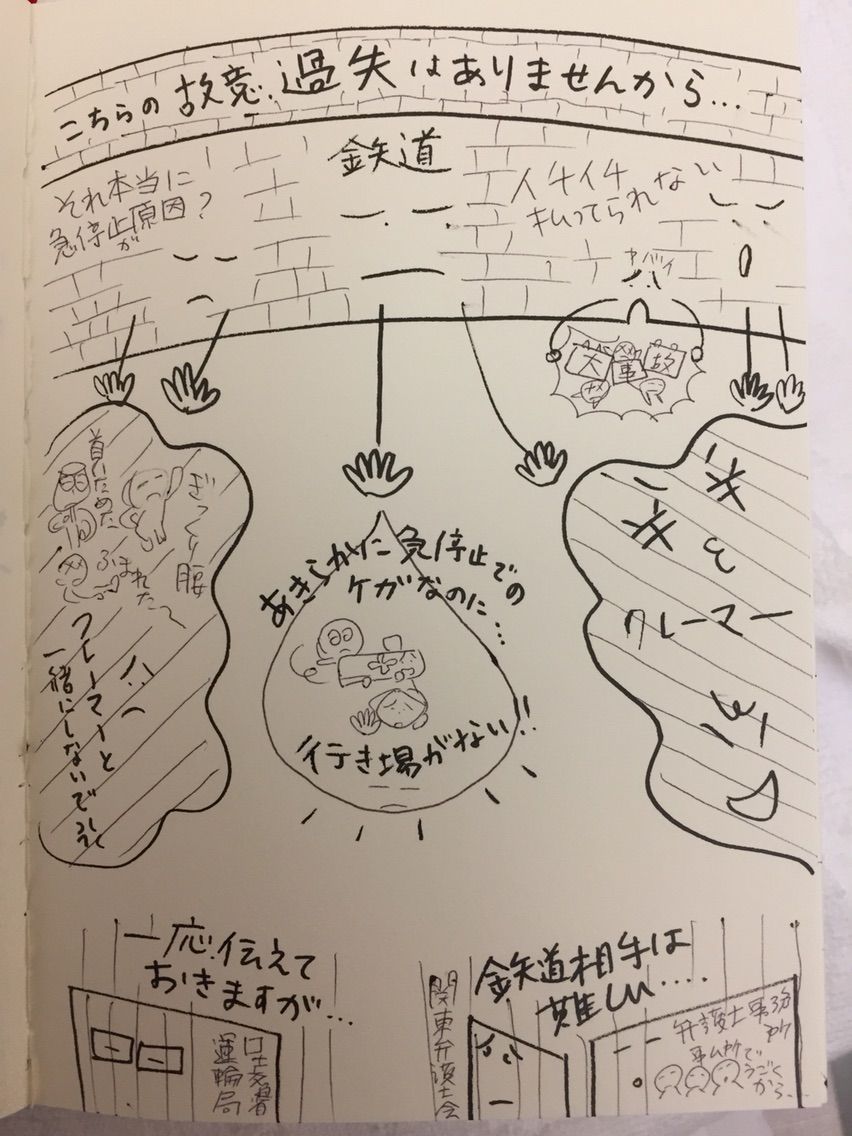 こちらの故意.過失はありませんから...
鉄道
それ本当に
急停止が原因?
イチイチ
払ってられない
ヤバイ
大事故
首いためた
ぎっくり腰
ふまれた〜
クレーマーと
一緒にしないで
あきらかに急停止での
ケガなのに...
行き場がない!!
クレーマー
一応伝えて
おきますが...
運輸局
鉄道相手は
難しい....
関東弁護士会
弁護士事務所
事ム所で
うごく
から...